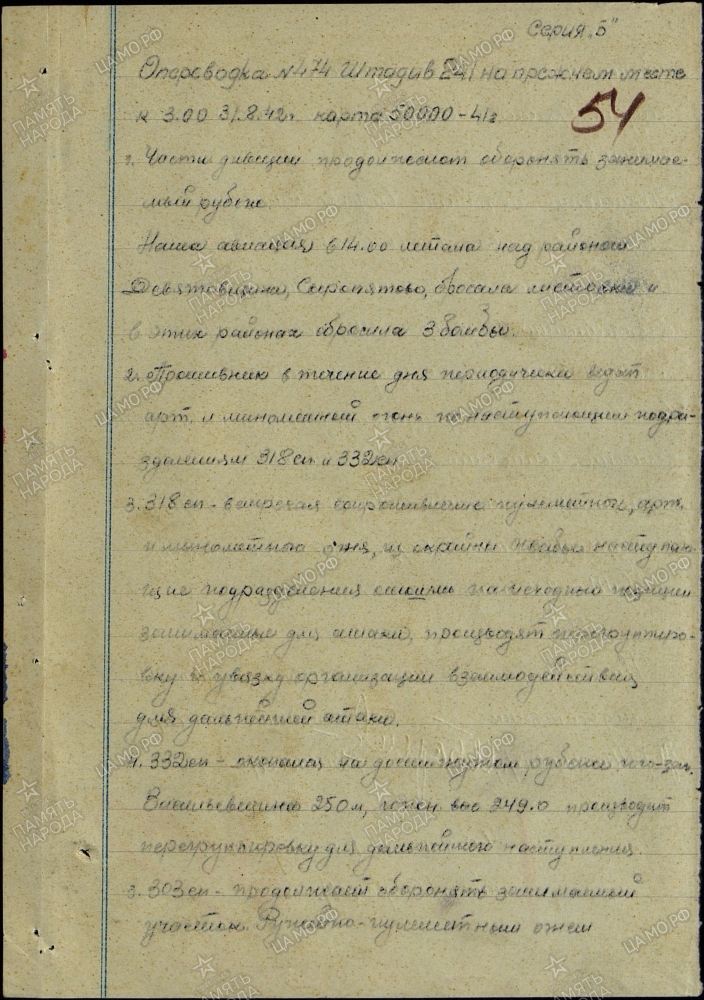 Серия "Б"
Оперсводка №474 Штадив 241 на прежнем месте
к 3.00 31.8.42г карта 50000-41г
54
1. Части дивизии продолжают оборонять занимае-
мый рубеж.
Наша авиация в 14.00 летала над районом
Девятовщина, Сыропятово, бросала листовки и
в этих районах сбросила 3 бомбы.
2. Противник в течение дня периодически ведет
арт. и минометный огонь по наступающим подра-
зделениям 318сп и 332сп
3. 318 сп - сопротивление пулеметного, арт.
и минометного огня, из наступаю-
щие подразделения отошли на исходную позицию
занимаемые для атаки, производят перегруппиро-
вку и увязку организации взаимодействия
для дальнейшей атаки.
4. 332сп - окопался на достигнутом рубеже юго-зап.
Васильевщина 250м, южн выс 249.0 производит
перегруппировку для дальнейшего наступления.
5. 303сп - продолжает оборонять занимаемый
участок. Ружейно-пулеметным огнем
ПАМЯТЬ НАРОДА
ЦАМО.РФ